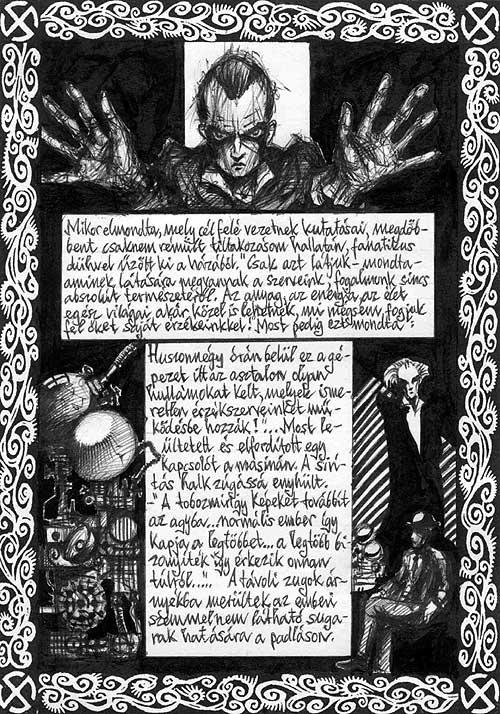 Mikor elmondta, mely cél felé vezetnek kutatásai, megdöb-
bent csaknem rémült tiltakozásom hallatán, fanatikus
dühvel űzött ki a házából. "Csak azt látjuk - mondta -
aminek látására megvannak a szerveink; fogalmunk sincs
abszolút természetéről. Az anyag, az energia, az élet
egész világai akár közel is lehetnek, mi mégsem fogjuk
fel őket saját érzékeinkkel! Most pedig ezt mondta:
Huszonnégy órán belül ez a gé-
pezet itt az asztalon olyan
hullámokat kelt, melyek isme-
retlen érzékszerveinket mű-
ködésbe hozzák!"...Most le-
ültetett és elfordított egy
kapcsolót a masinán. A siví-
tás halk zúgássá enyhült.
-"A tobozmirigy képeket továbbít
az agyba...normális ember így
kapja a legtöbbet...a legtöbb bi-
zonyíték így érkezik onnan
túlról...." "A távoli zugok ár-
nyékba merültek az emberi
szemmel nem látható suga-
rak hatására a padláson.